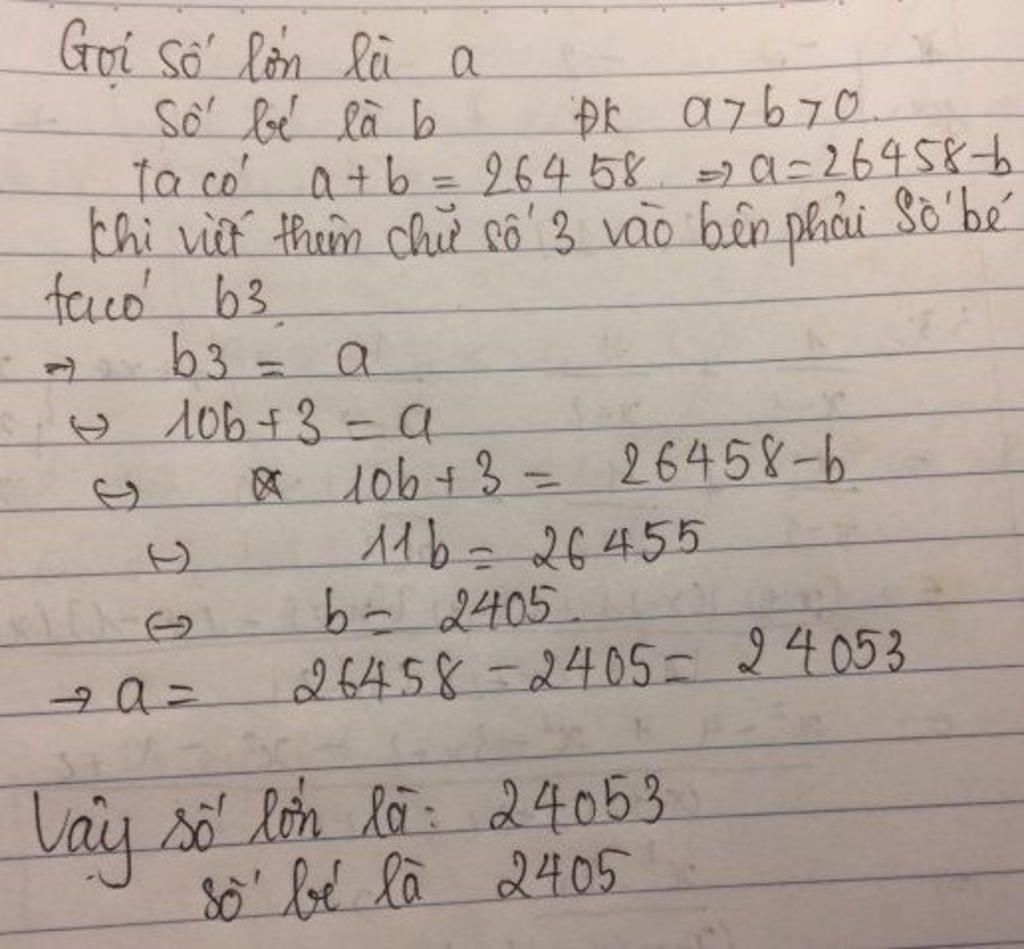 Gọi số lớn là a
số bé là b ĐK a > b > 0.
ta có a + b = 26458. ⇒ a = 26458 - b
khi viết thêm chữ số 3 vào bên phải số bé
ta có b3.
→ b3 = a
↔ 10b + 3 = a
↔ 10b + 3 = 26458 - b
↔ 11b = 26455
↔ b = 2405.
→ a = 26458 - 2405 = 24053
Vậy số lớn là: 24053
số bé là 2405